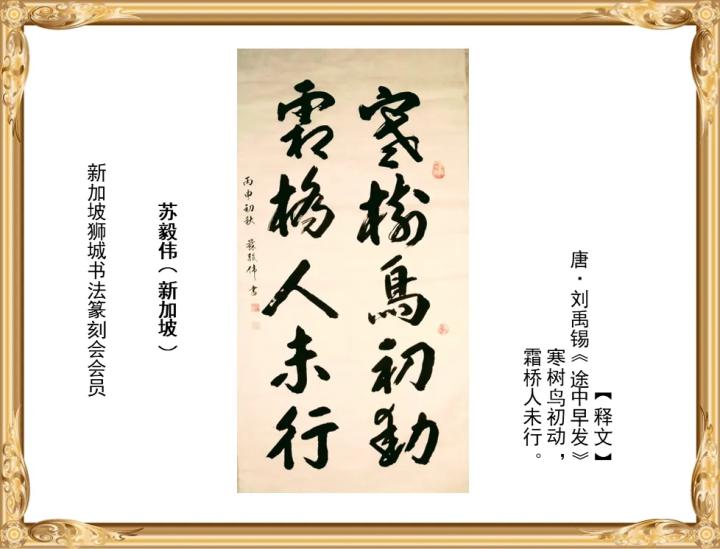 【释文】
唐·刘禹锡《途中早发》
寒树鸟初动，
霜桥人未行。
寒樹鳥初動
霜橋人未行
丙申初秋 蘇毅偉書
苏毅伟（新加坡）
新加坡狮城书法篆刻会会员